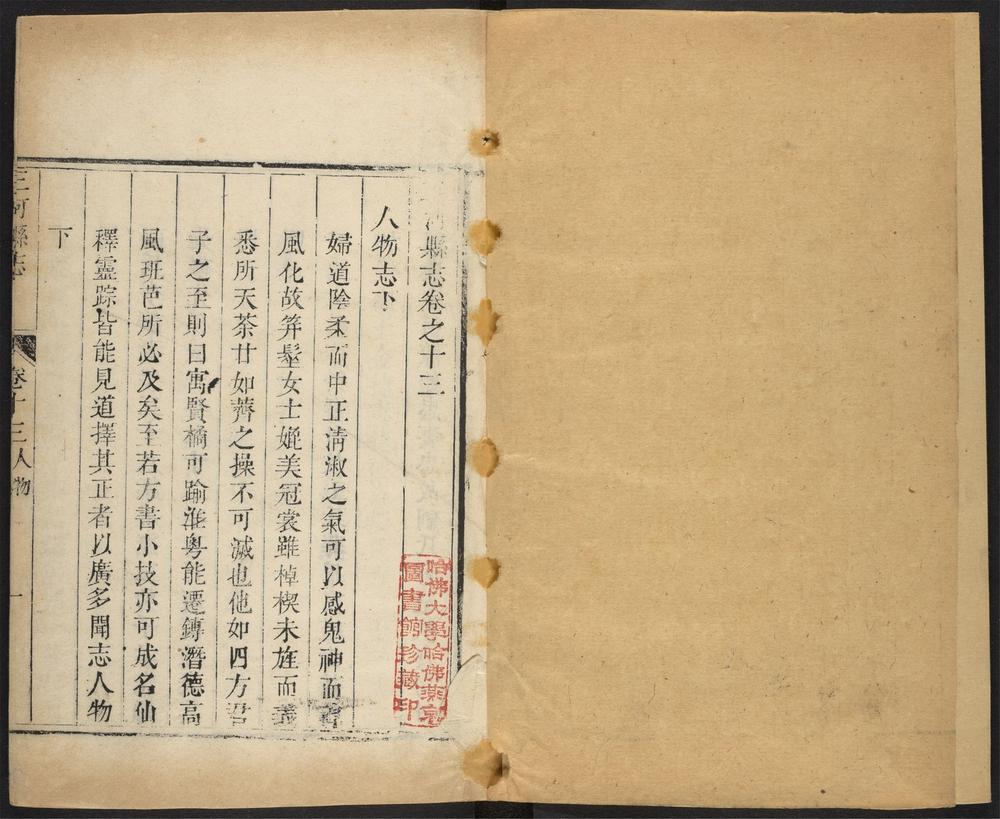 河縣志卷之十三
人物志下
婦道陰柔而中正淸淑之氣可以感鬼神而
風化故笄髽女士媲美冠裳雖棹楔未旌而義
悉所天茶廿如薺之操不可滅也他如四方
子之至則曰寓賢橘可踰淮粤能遷鎛潛德高
風班芭所必及矣至若方書小技亦可成名仙
釋靈踪皆能見道擇其正者以廣多聞志人物
下
三河縣志 卷十三人物 一
哈佛大學哈佛燕京
圖書館珍藏印